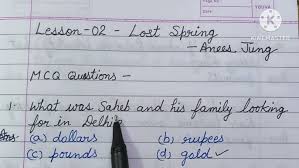 YOUVA
KINEMASTER
Lesson-02 - Lost Spring
- Anees Jung
MCQ Questions -
1- what was Saheb and his family looking
for in Delhi?
Ans: (a) dollars (b) rupees
(c) pounds (d) gold ✓